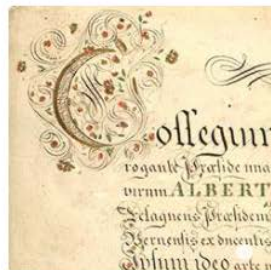 Collegium
rogante Præside una
virum ALBERT
Helagnens Præsidem
Bernensis ex ducentis
Ipsum ideo arte m